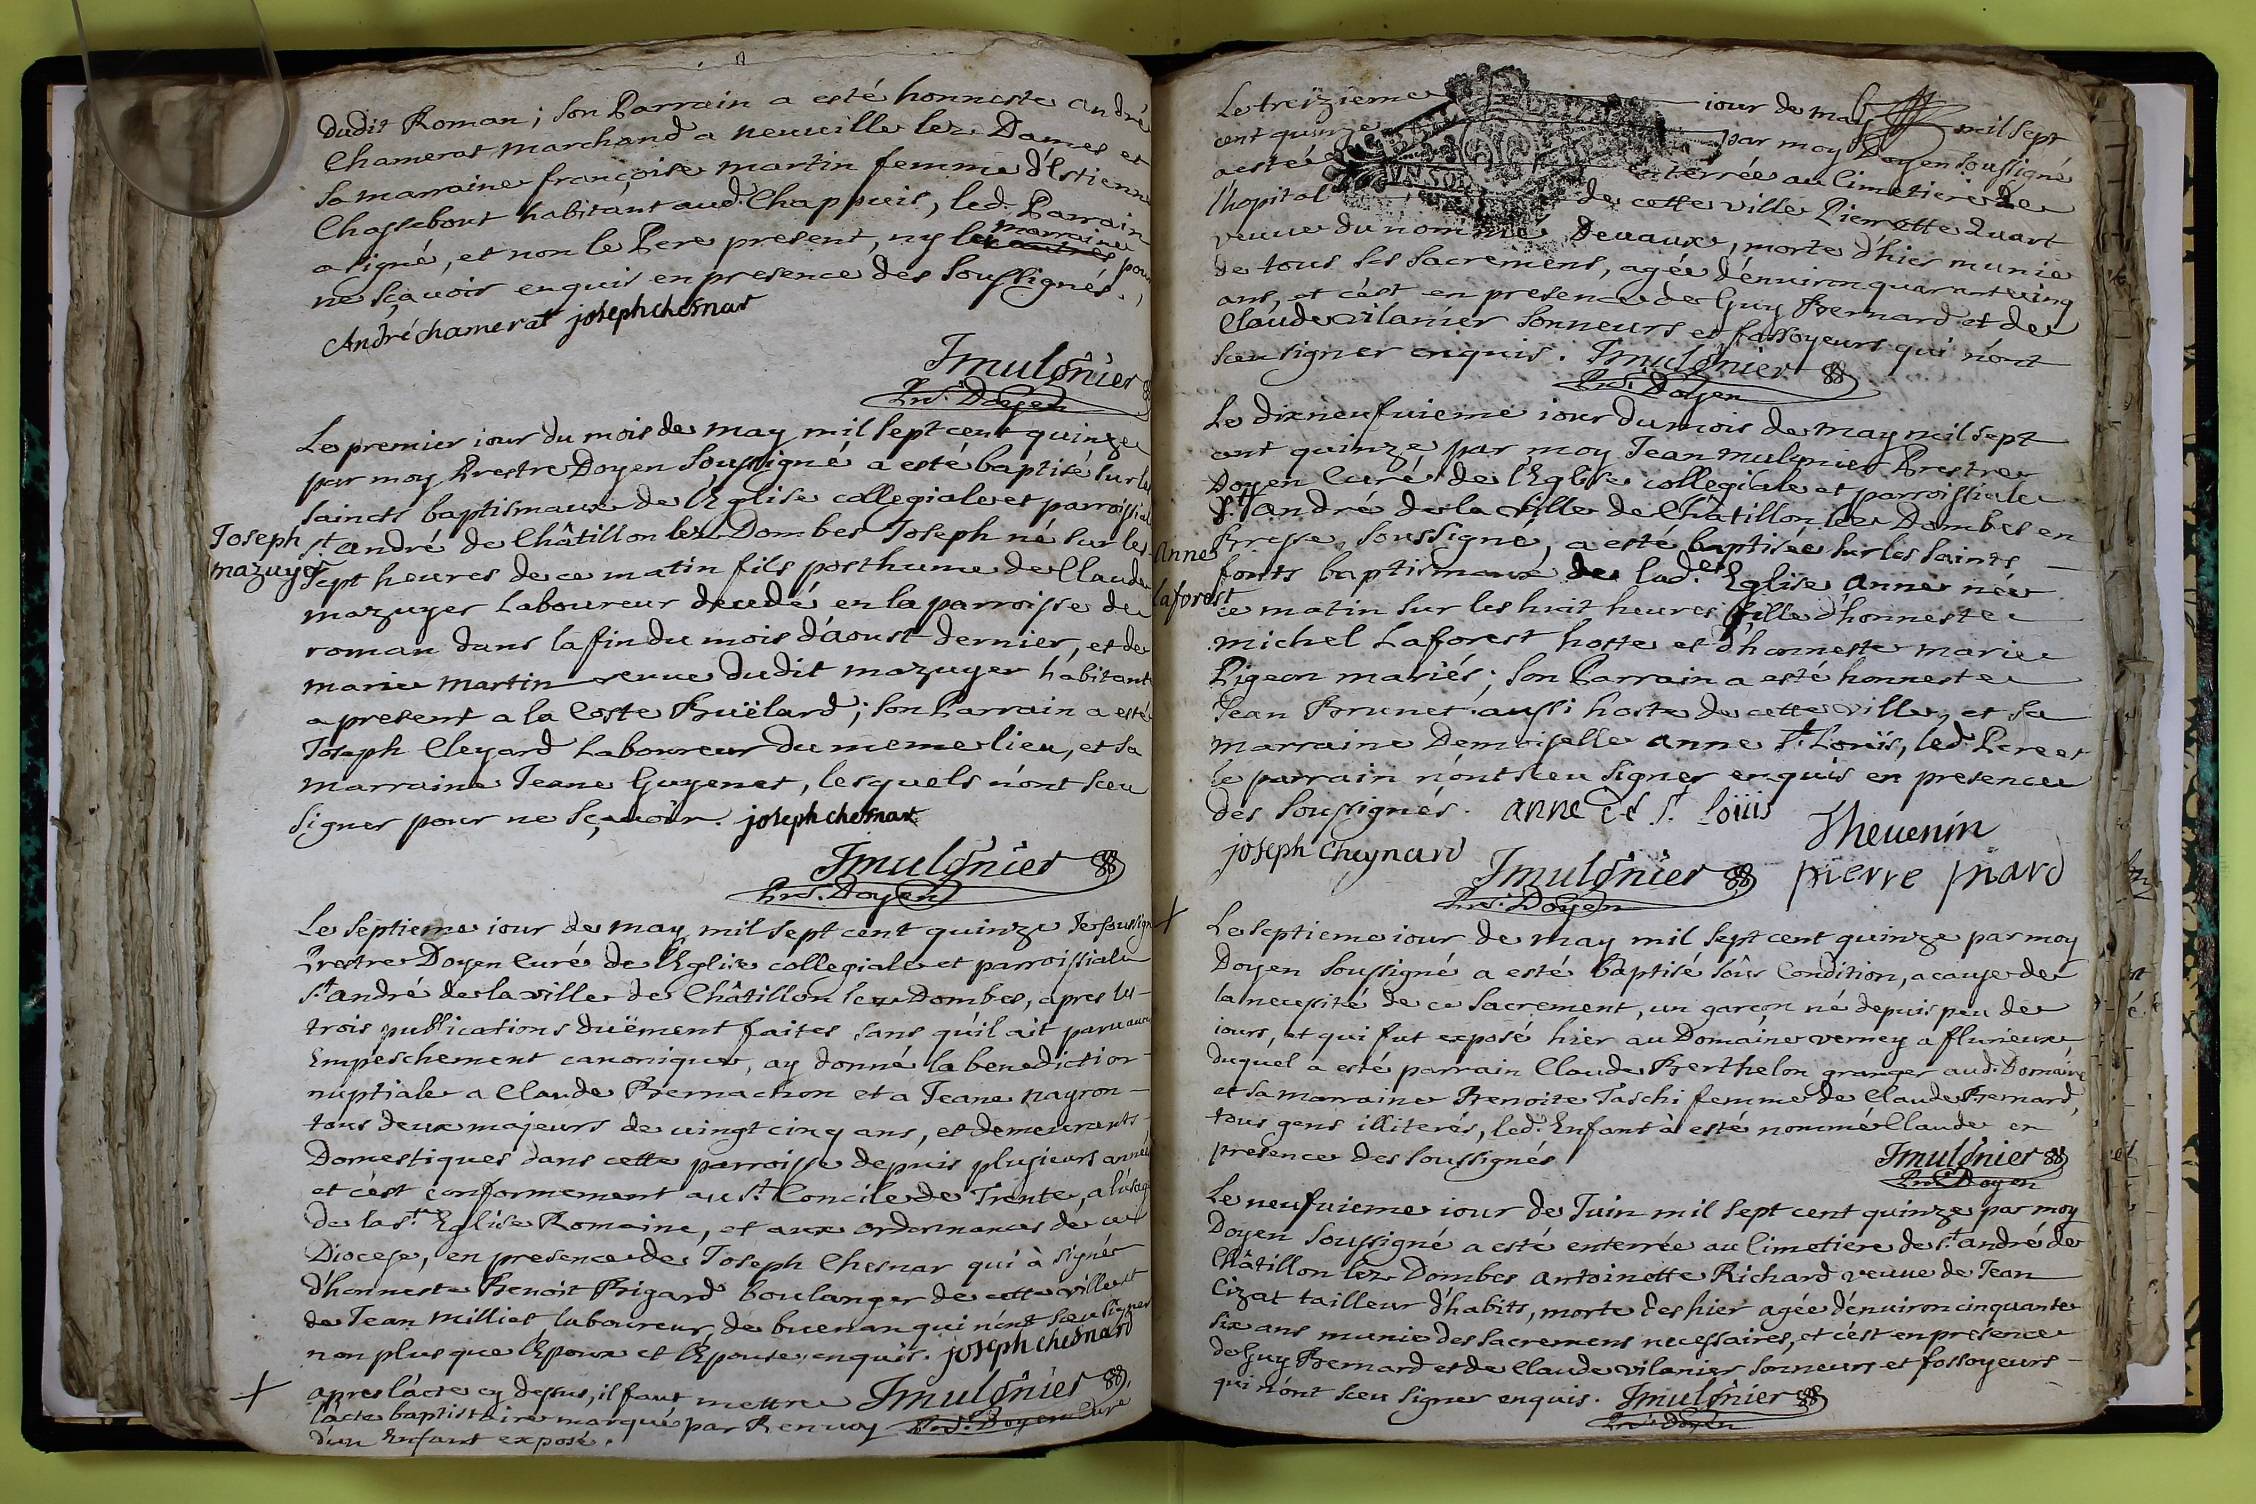 dudit Roman; son Parrain a esté honneste andré
Chamerat marchand a neuuille lez Dames et
sa marraine françoise martin femme d'Estienne
Chassebout habitant aud. Chappuis, led. Parrain
a signé, et non le Pere present, ny la marraine pour
ne sçauoir enquis en presence des soussignés.
André chamerat joseph chesnar
Jmulsnier
Pre. Doyen
Le premier iour du mois de may mil sept cent quinze
par moy Prestre Doyen soussigné a esté baptisé sur les
saincts baptismaux de l'Eglise collegiale et parroissiale
Joseph mazuyer
st. andré de Châtillon lez Dombes Joseph né sur les
sept heures de ce matin fils posthume de Claude
mazuyer Laboureur decedé en la parroisse de
roman dans la fin du mois d'aoust dernier, et de
marie martin veuue dudit mazuyer habitant
a present a la Coste Buëlard; son Parrain a esté
Joseph Cleyard Laboureur du meme lieu, et sa
marraine Jeane Guyenet, lesquels n'ont sceu
signer pour ne sçauoir. joseph chesnar
Jmulsnier
Pre. Doyen
Le septieme iour de may mil sept cent quinze Je soussigné
Prestre Doyen Curé de l'Eglise collegiale et parroissiale
st. andré de la ville de Châtillon lez Dombes, apres les
trois publications duëment faites sans qu'il ait paru aucun
Empeschement canonique, ay donné la benediction
nuptiale a Claude Bernachon et a Jeane nayron
tous deux majeurs de vingt cinq ans, et demeurants
Domestiques dans cette parroisse depuis plusieurs années
et c'est conformement au st. Concile de Trente, a l'usage
de la ste. Eglise Romaine, et aux ordonnances de ce
Diocese, en presence de Joseph Chesnar qui à signé
d'honneste Benoit Brigard boulanger de cette ville et
de Jean milliet laboureur de buenan qui n'ont sceu signer
non plus que l'Epoux et l'Epouse, enquis. joseph chesnard
+ apres l'acte cy dessus, il faut mettre Jmulsnier
l'acte baptistaire marqué par Renuoy Pre. Doyen Curé
d'un Enfant exposé.
Le treizieme iour de may mil sept
cent quinze par moy Doyen soussigné
a esté enterrée au Cimetiere de
l'hopital de cette ville Pierrette Quart
veuue du nommé Deuaux, morte d'hier munie
de tous les sacremens, agée d'enuiron quarant cinq
ans, et c'est en presence de Guy Bernard et de
Claude vilanier sonneurs et fossoyeurs qui n'ont
sceu signer enquis. Jmulsnier
Pre. Doyen
Le dixneufuieme iour du mois de may mil sept
cent quinze par moy Jean mulsnier Prestre
Doyen Curé de l'Eglise collegiale et parroissiale
st. andré de la ville de Châtillon lez Dombes en
Anne Laforest
Bresse, soussigné, a esté baptisée sur les saints
fonts baptismaux de lad. Eglise Anne née
ce matin sur les huit heures fille d'honneste
michel Laforest hoste et d'honneste marie
Pigeon mariés; son Parrain a esté honneste
Jean Brunet aussi hoste de cette ville, et sa
marraine Demoiselle anne st. Loüis, led. Pere et
le parrain n'ont sceu signer enquis en presence
des soussignés. anne de st. loüis
Theuenin
joseph cheynard
Jmulsnier
pierre pinard
Pre. Doyen
+ Le septieme iour de may mil sept cent quinze par moy
Doyen soussigné a esté baptisé sous Condition, a cause de
la necessité de ce sacrement, un garçon né depuis peu de
iours, et qui fut exposé hier au Domaine verney a flurieux
duquel a esté parrain Claude Berthelon granger aud. Domaine
et sa marraine Benoite Taschi femme de Claude Bernard,
tous gens illiterés, led. Enfant à esté nommé Claude en
presence des soussignés
Jmulsnier
Pre. Doyen
Le neufuieme iour de Juin mil sept cent quinze par moy
Doyen soussigné a esté enterrée au Cimetiere de st. andré de
Châtillon lez Dombes antoinette Richard veuue de Jean
Cizat tailleur d'habits, morte des hier agée d'enuiron cinquante
six ans munie des sacremens necessaires, et c'est en presence
de Guy Bernard et de Claude vilanier sonneurs et fossoyeurs
qui n'ont sceu signer enquis. Jmulsnier
Pre. Doyen